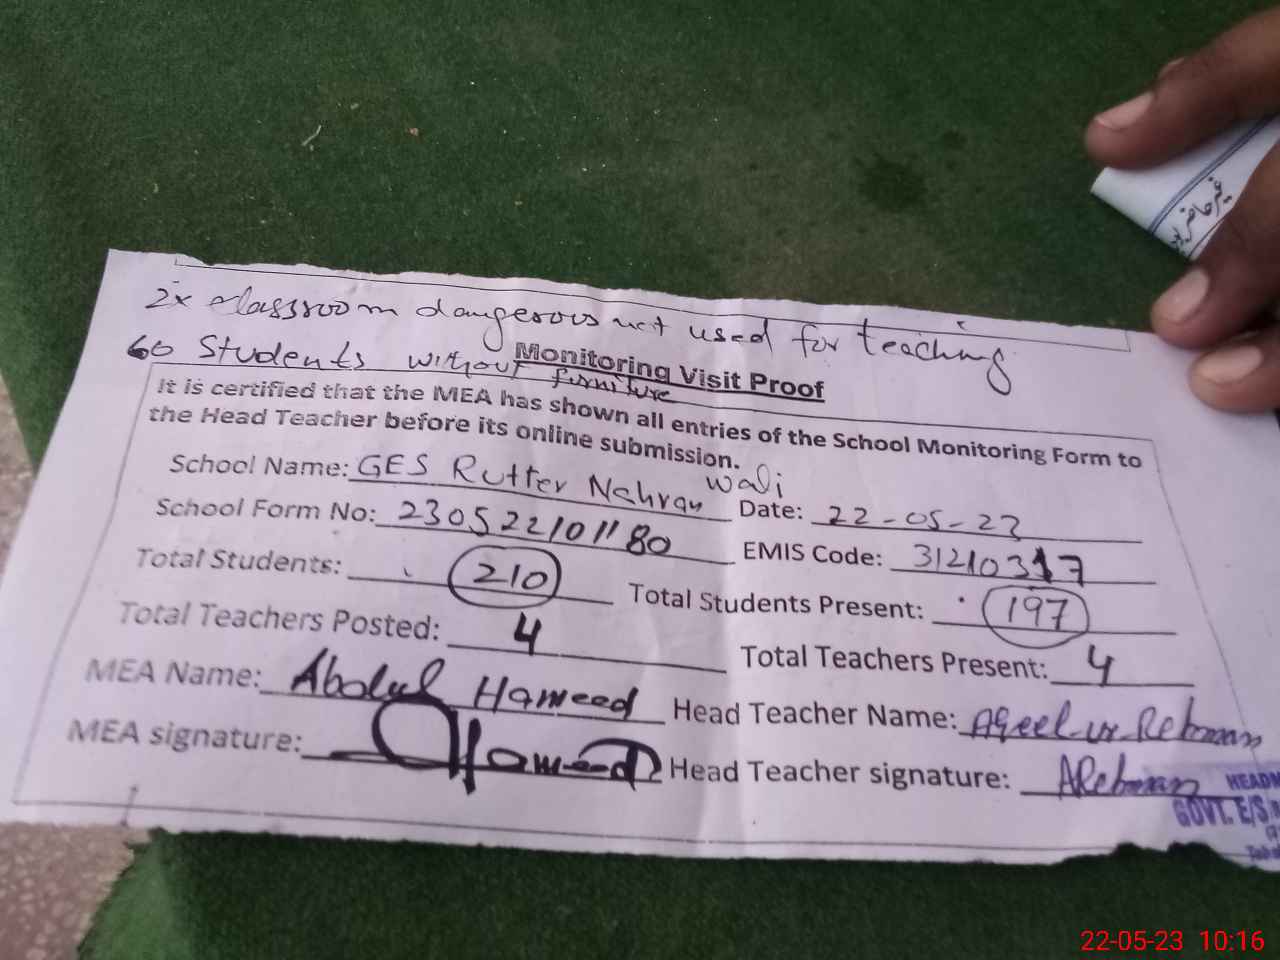 2x classroom dangerous not used for teaching
60 Students without furniture
Monitoring Visit Proof
It is certified that the MEA has shown all entries of the School Monitoring Form to
the Head Teacher before its online submission.
School Name: GES Rutter Nehran wali Date: 22-05-23
School Form No: 230522101180 EMIS Code: 31210317
Total Students: 210 Total Students Present: 197
Total Teachers Posted: 4 Total Teachers Present: 4
MEA Name: Abdul Hameed Head Teacher Name: Aqeel-ur-Rehman
MEA signature: Hameed Head Teacher signature: ARehman
HEADM
GOVT. E/S
غیر حاضر
22-05-23 10:16